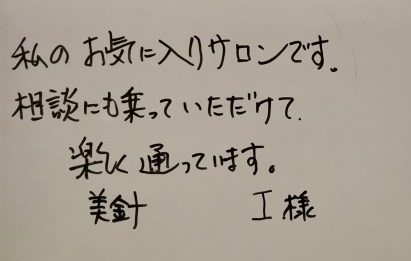 私のお気に入りサロンです。
相談にも乗っていただけて.
楽しく通っています。
美針 I様